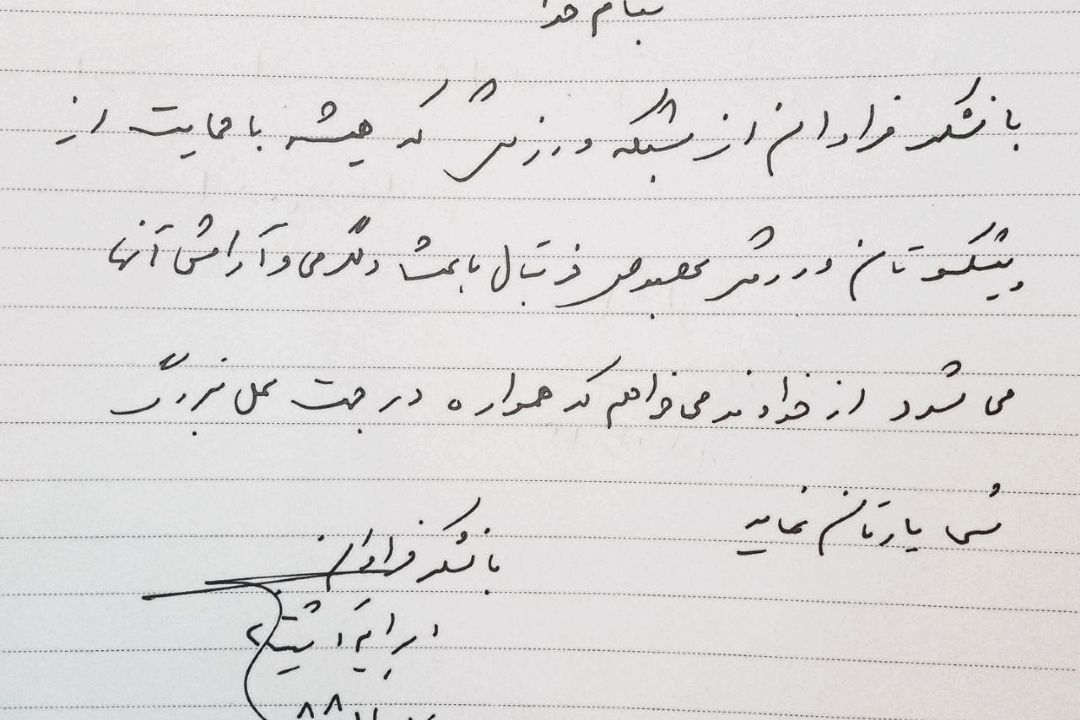 بنام خدا
با تشکر فراوان از شبکه ورزش که همیشه با حمایت از
پیشکسوتان ورزش بخصوص فوتبال باعث دلگرمی و آرامش آنها
می شود از خداوند می خواهم که همواره در جهت عمل بزرگ
شما یارتان نماید
با تشکر فراوان
ابراهیم آشتیانی
۸۸